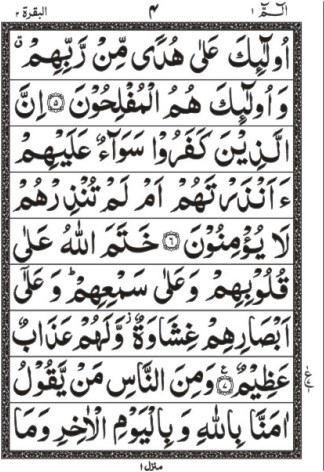 الٓمّٓ ١ ٤ البقرة ٢
اُولٰٓئِكَ عَلٰی هُدًی مِّنْ رَّبِّهِمْ ۗ
وَ اُولٰٓئِكَ هُمُ الْمُفْلِحُوْنَ ۝٥ اِنَّ
الَّذِیْنَ كَفَرُوْا سَوَآءٌ عَلَیْهِمْ
ءَاَنْذَرْتَهُمْ اَمْ لَمْ تُنْذِرْهُمْ
لَا یُؤْمِنُوْنَ ۝٦ خَتَمَ اللّٰهُ عَلٰی
قُلُوْبِهِمْ وَ عَلٰی سَمْعِهِمْ ؕ وَ عَلٰۤی
اَبْصَارِهِمْ غِشَاوَةٌ ؗ وَّ لَهُمْ عَذَابٌ
عَظِیْمٌ ۝٧ ع وَ مِنَ النَّاسِ مَنْ یَّقُوْلُ
اٰمَنَّا بِاللّٰهِ وَ بِالْیَوْمِ الْاٰخِرِ وَ مَا
منزل ١